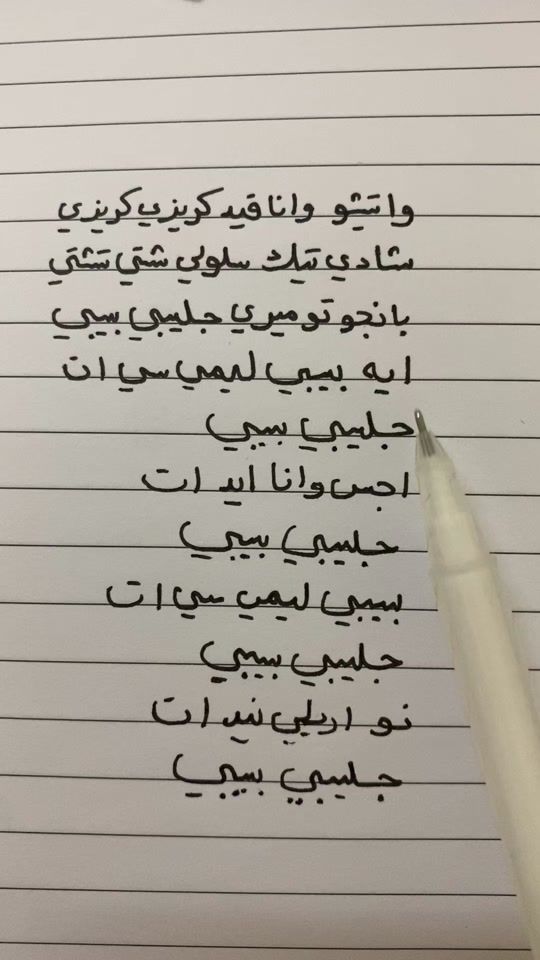 واتشو وانا قيد كريزي كريزي
شادي تيك سلولي شتي تشتي
بانجو توميري جليبي بيبي
ايه بيبي ليمي سي ات
جليبي بيبي
اجس وانا ايد ات
جليبي بيبي
بيبي ليمي سي ات
جليبي بيبي
نو اريلي نيد ات
جليبي بيبي